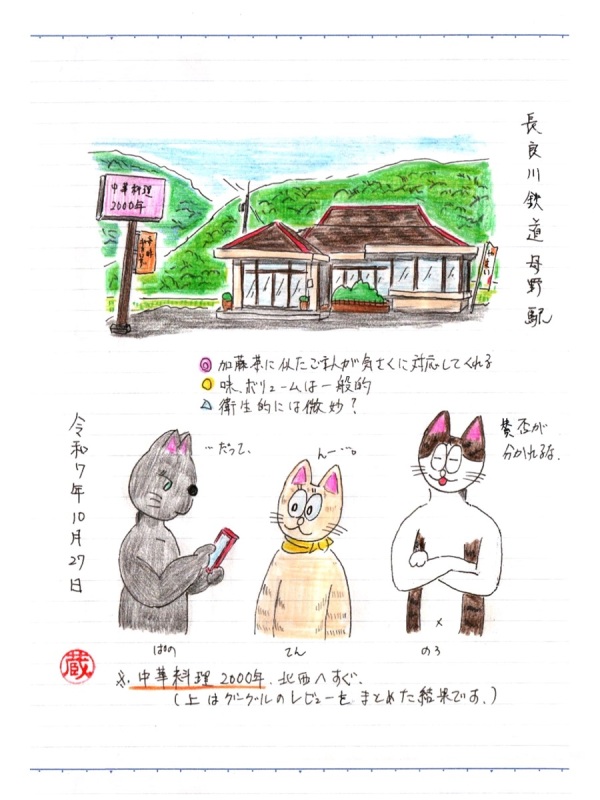 長良川鉄道母野駅
中華料理
2000年
◎加藤茶に似たごまんが気さくに対応してくれる
○味、ボリュームは一般的
△衛生的には微妙?
令和7年10月27日
…だって、
んー…。
賛否が
分かれるな。
ぱの
てん
のろ
蔵
※.中華料理2000年、北西へすぐ。
(上はグーグルのレビューをまとめた結果です。)